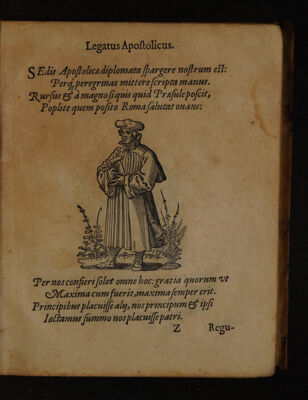 Legatus Apostolicus.
SEdis Apostolicæ diplomata spargere nostrum est:
Perq́, peregrinas mittere scripta manus.
Rursus & à magno si quis quid Præsule poscit,
Poplite quem posito Roma salutat ouans:
Per nos confieri solet omne hoc: gratia quorum vt
Maxima cum fuerit, maxima semper erit.
Principibus placuisse alij, nos principum & ipsi
Iactamus summo nos placuisse patri.
Z Regu-